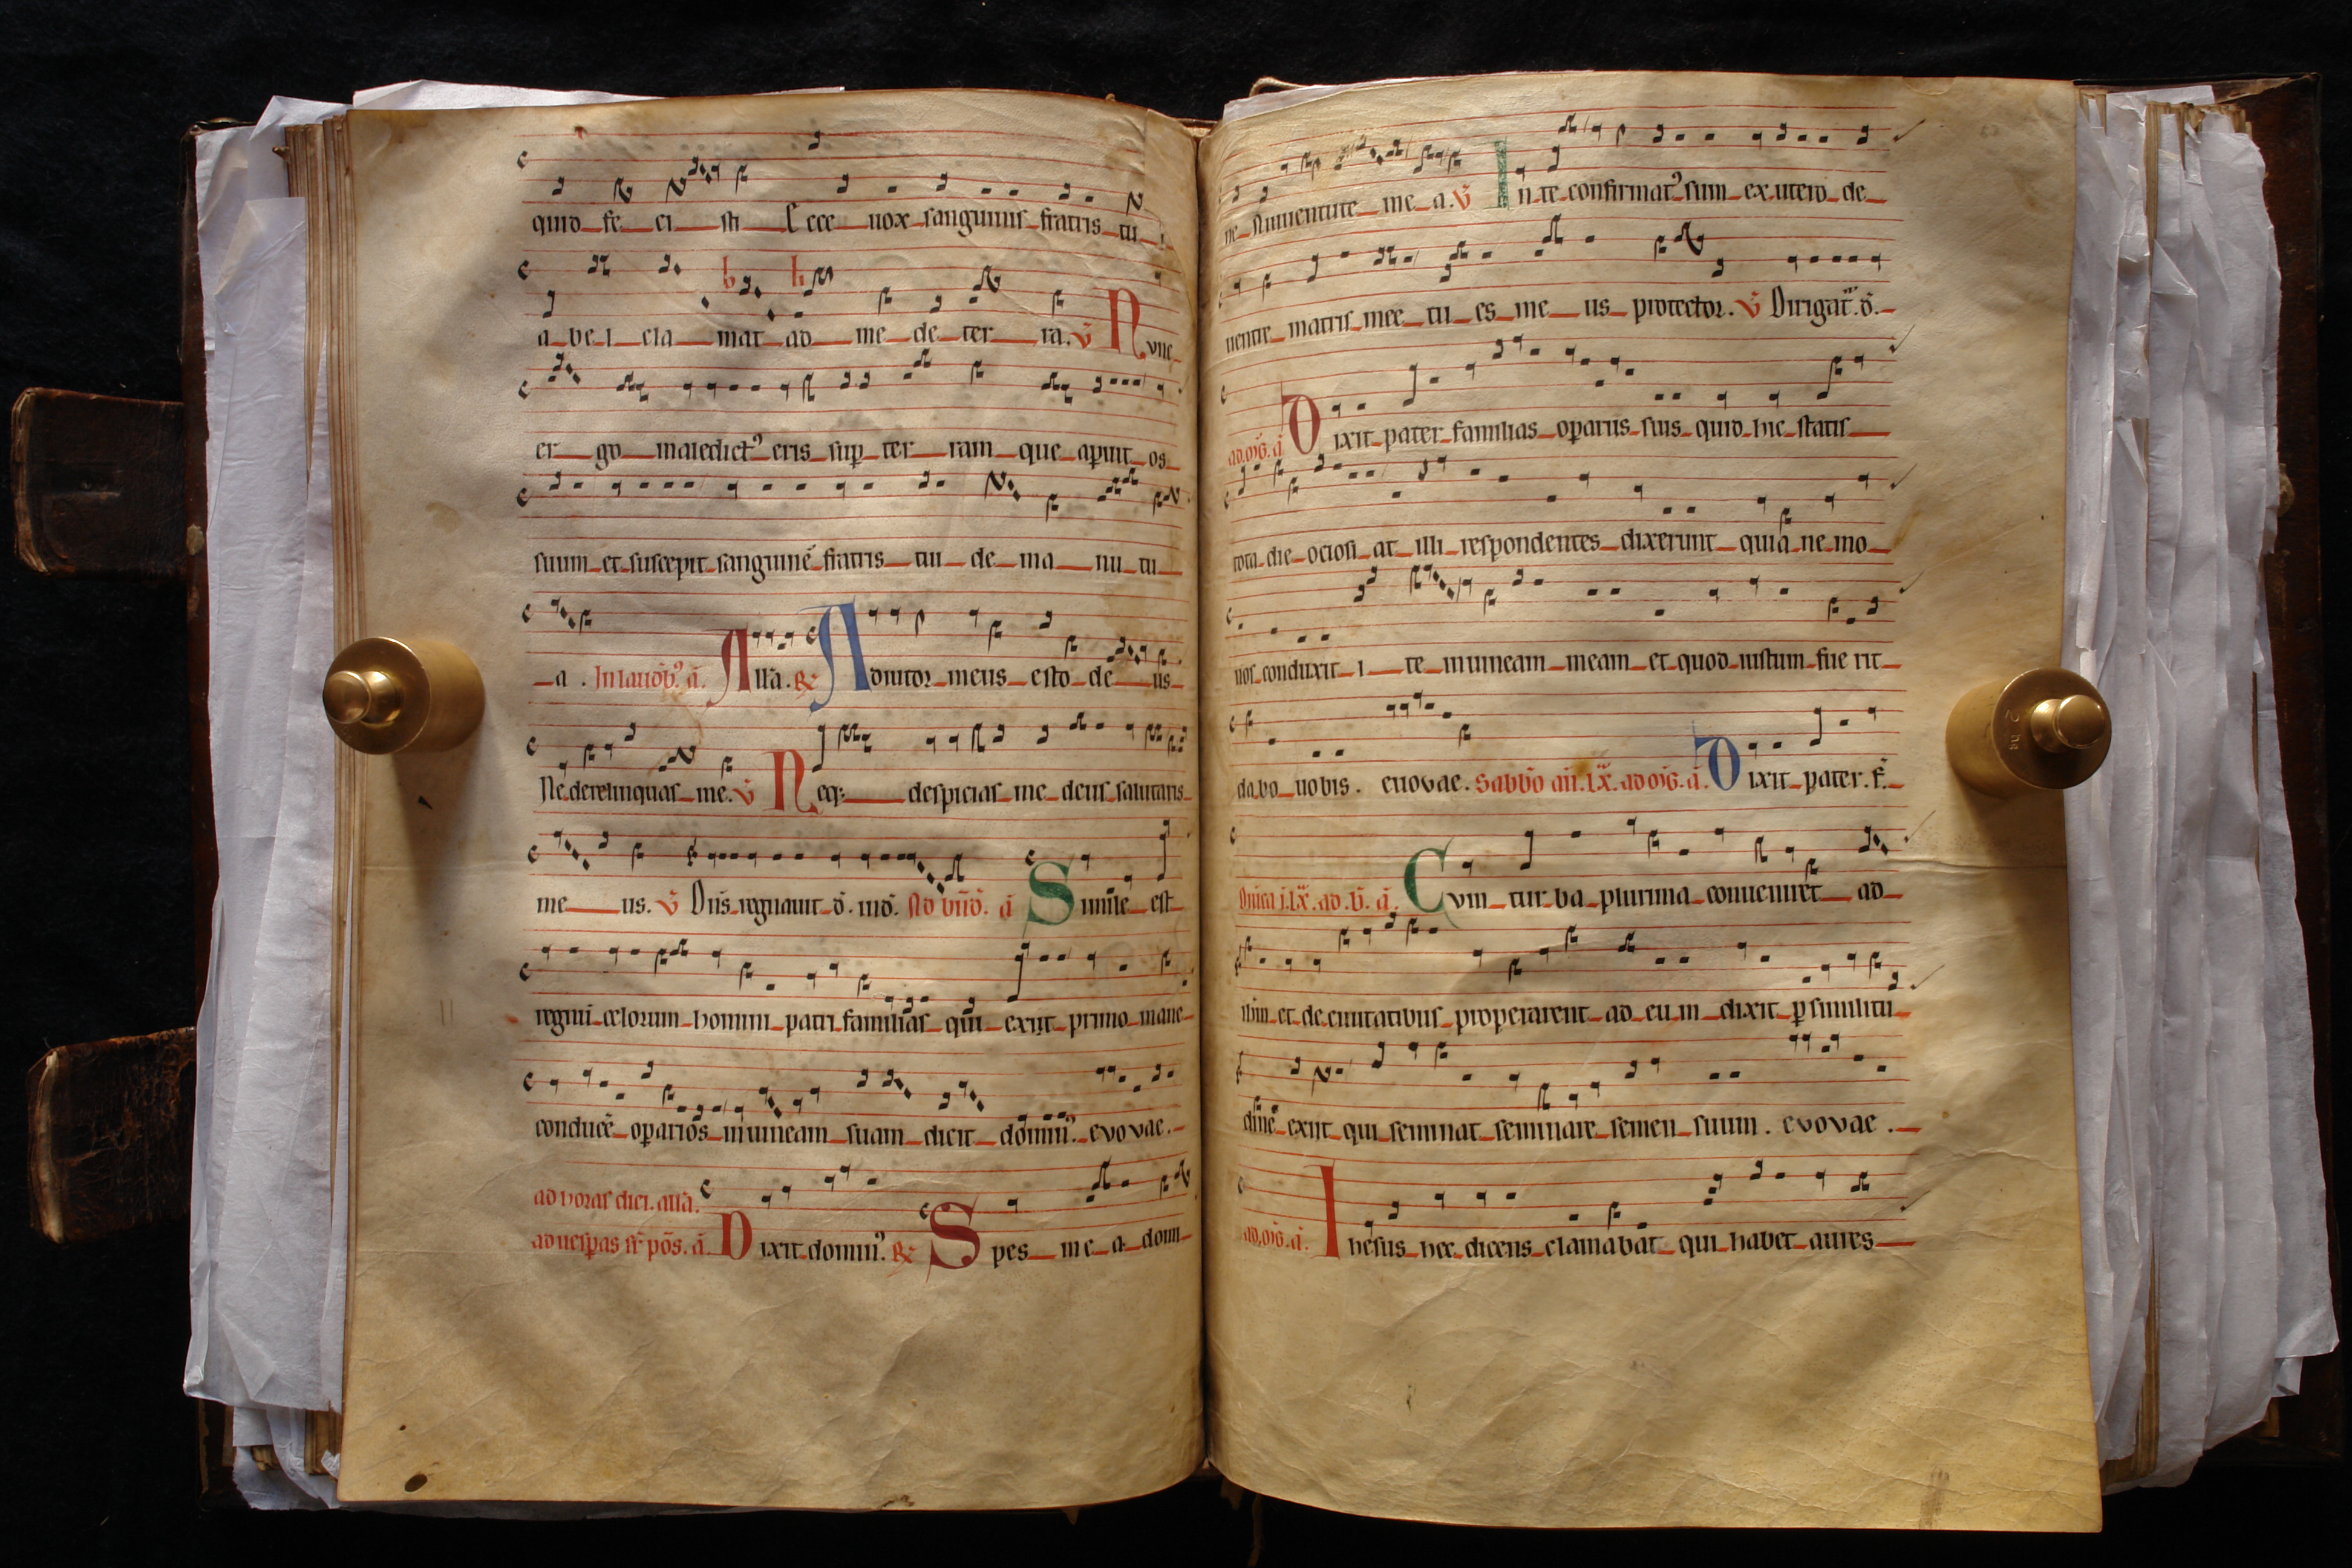 quid fe ci sti Ecce uox sanguinis fratris tu i
a be l cla mat ad me de ter ra. v̄ Nvnc
er go maledict⁹ eris sup ter ram que aperuit os
suum et suscepit sanguinē fratris tui de ma nu tu
a . In laudib⁹. ā. All'a. R Adiutor meus esto de us
Ne derelinquas me. v̄ Neq; despicias me deus salutaris
me us. v̄ Dn̄s regnauit d. ind. Ad bn̄d. ā Simile est
regnū celorum homini patri familias qui exiit primo mane
conducē operarios in uineam suam dicit domin⁹. evovae.
ad horas diei. all'a.
ad uesperas sr̄ pōs. ā. Dixit domin⁹. R Spes me a domi
ne A iuuentute me a. v̄ In te confirmat⁹ sum ex utero de
uentre matris mee tu es me us protector. v̄ Dirigat̄. d.
ad. mḡ. ā Dixit pater familias operariis suis quid hic statis
tota die ociosi at illi respondentes dixerunt quia ne mo
nos conduxit i te in uineam meam et quod iustum fue rit
dabo uobis. euovae. Sabb̄o an̄. lx̄. ad mḡ. ā. Dixit pater. f.
Dn̄ica i. lx̄. ad. b̄. ā. Cvm tur ba plurima conueniret ad
ihm et de ciuitatibus properarent ad eum dixit p similitu
dinē exiit qui seminat seminare semen suum. evovae.
ad. mḡ. ā. Ihesus hec dicens clamabat qui habet aures